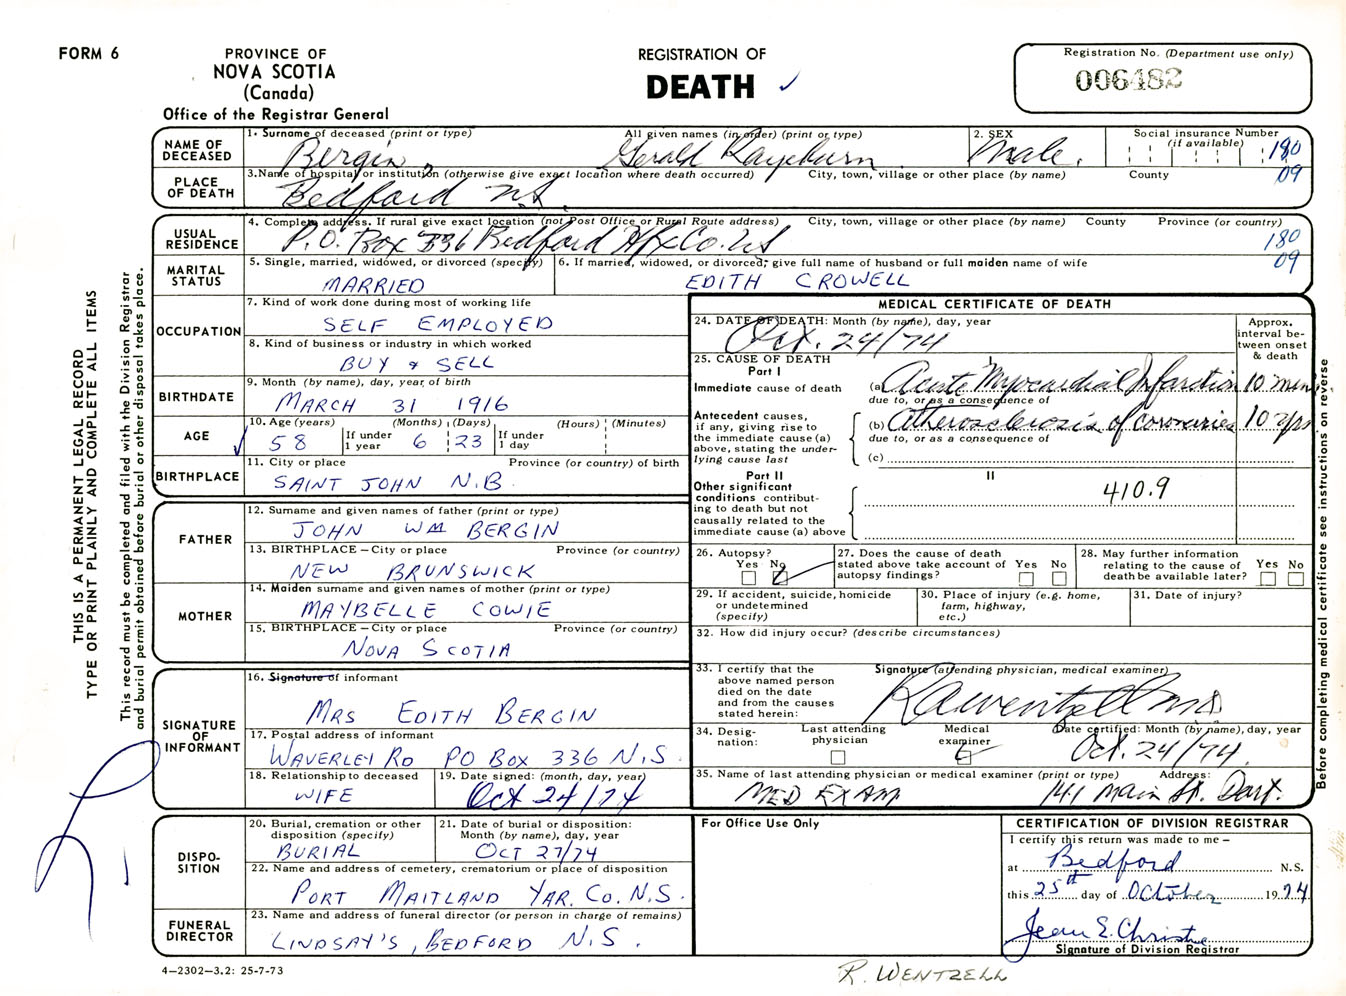 FORM 6
PROVINCE OF
NOVA SCOTIA
(Canada)
Office of the Registrar General
REGISTRATION OF
DEATH ✓
Registration No. (Department use only)
006482
NAME OF DECEASED
1. Surname of deceased (print or type) All given names (in order) (print or type)
Bergin, Gerald Rayeburn
2. SEX
Male.
Social insurance Number (if available)
180
09
PLACE OF DEATH
3. Name of hospital or institution (otherwise give exact location where death occurred) City, town, village or other place (by name) County
Bedford N.S.
USUAL RESIDENCE
4. Complete address. If rural give exact location (not Post Office or Rural Route address) City, town, village or other place (by name) County Province (or country)
P.O. Box 336 Bedford Hfx Co. NS
180
09
MARITAL STATUS
5. Single, married, widowed, or divorced (specify)
MARRIED
6. If married, widowed, or divorced, give full name of husband or full maiden name of wife
EDITH CROWELL
OCCUPATION
7. Kind of work done during most of working life
SELF EMPLOYED
8. Kind of business or industry in which worked
BUY & SELL
BIRTHDATE
9. Month (by name), day, year of birth
MARCH 31 1916
AGE
10. Age (years) (Months) (Days) (Hours) (Minutes)
58 If under 1 year 6 23 If under 1 day
BIRTHPLACE
11. City or place Province (or country) of birth
SAINT JOHN N.B
FATHER
12. Surname and given names of father (print or type)
JOHN WM BERGIN
13. BIRTHPLACE – City or place Province (or country)
NEW BRUNSWICK
MOTHER
14. Maiden surname and given names of mother (print or type)
MAYBELLE COWIE
15. BIRTHPLACE – City or place Province (or country)
NOVA SCOTIA
SIGNATURE OF INFORMANT
16. Signature of informant
MRS EDITH BERGIN
17. Postal address of informant
WAVERLEY RD PO BOX 336 N.S.
18. Relationship to deceased
WIFE
19. Date signed: (month, day, year)
Oct 24/74
DISPO-
SITION
20. Burial, cremation or other disposition (specify)
BURIAL
21. Date of burial or disposition: Month (by name), day, year
OCT 27/74
22. Name and address of cemetery, crematorium or place of disposition
PORT MAITLAND YAR. CO. N.S.
FUNERAL DIRECTOR
23. Name and address of funeral director (or person in charge of remains)
LINDSAY'S, BEDFORD N.S.
4–2302–3.2: 25-7-73
MEDICAL CERTIFICATE OF DEATH
24. DATE OF DEATH: Month (by name), day, year
Oct. 24/74
Approx. interval be-
tween onset & death
25. CAUSE OF DEATH
Part I
I
Immediate cause of death
(a) Acute Myocardial Infarction 10 min.
due to, or as a consequence of
Antecedent causes, if any, giving rise to the immediate cause (a) above, stating the under-
lying cause last
(b) Atherosclerosis of coronaries 10 yrs
due to, or as a consequence of
(c)
Part II
II
Other significant conditions contribut-
ing to death but not causally related to the immediate cause (a) above
410.9
26. Autopsy?
Yes No
27. Does the cause of death stated above take account of autopsy findings?
Yes No
28. May further information relating to the cause of death be available later?
Yes No
29. If accident, suicide, homicide or undetermined (specify)
30. Place of injury (e.g. home, farm, highway, etc.)
31. Date of injury?
32. How did injury occur? (describe circumstances)
33. I certify that the above named person died on the date and from the causes stated herein:
Signature (attending physician, medical examiner)
R Wentzell MD
34. Desig-
nation:
Last attending physician
Medical examiner
Date certified: Month (by name), day, year
Oct. 24/74
35. Name of last attending physician or medical examiner (print or type) Address:
MED EXAM 141 Main St. Dart.
For Office Use Only
CERTIFICATION OF DIVISION REGISTRAR
I certify this return was made to me –
at Bedford N.S.
this 25th day of October 1974
Jean E. Christie
Signature of Division Registrar
R. WENTZELL
THIS IS A PERMANENT LEGAL RECORD
TYPE OR PRINT PLAINLY AND COMPLETE ALL ITEMS
This record must be completed and filed with the Division Registrar
and burial permit obtained before burial or other disposal takes place.
Before completing medical certificate see instructions on reverse